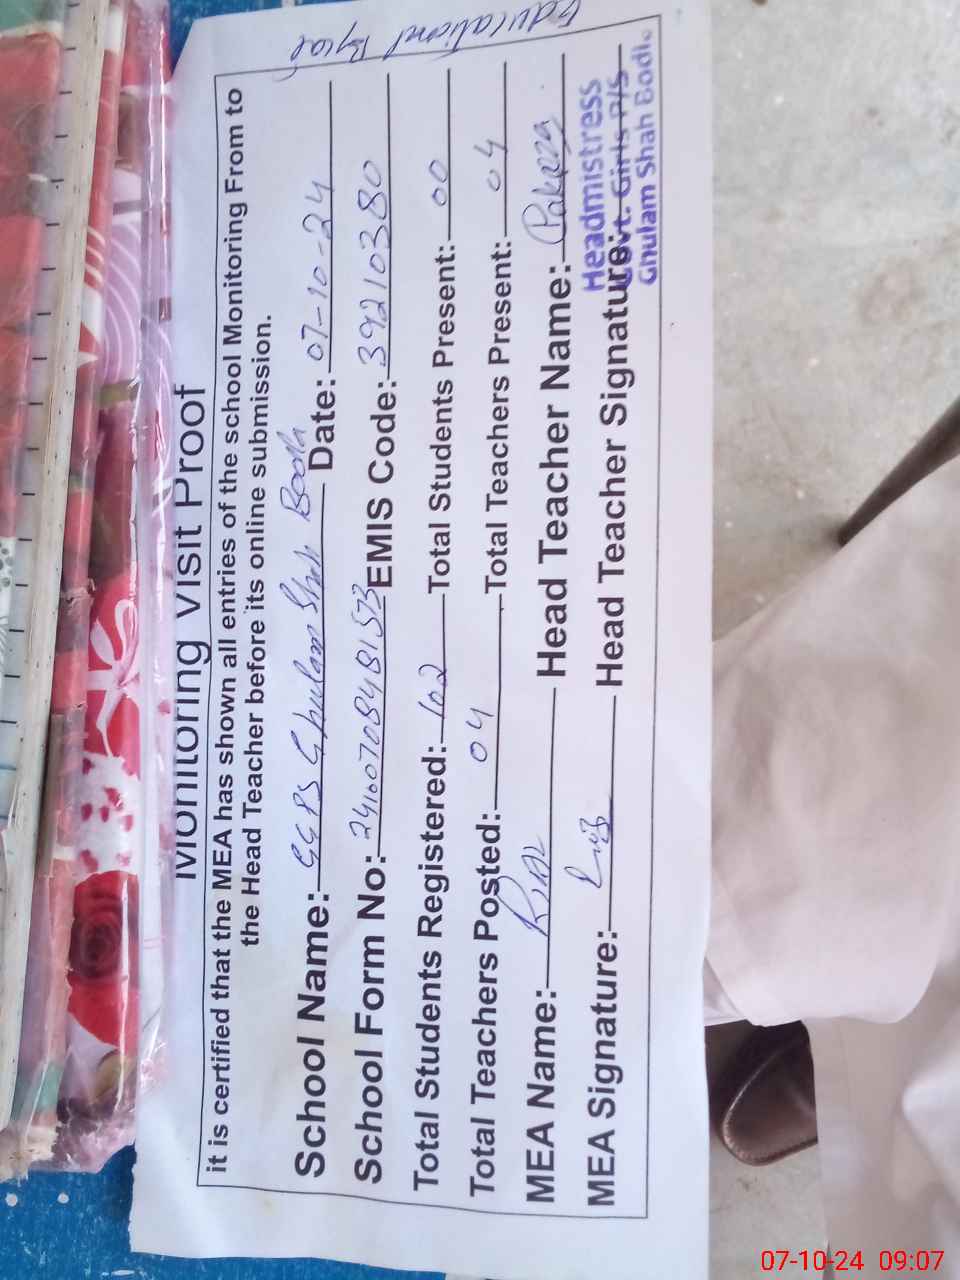 Monitoring Visit Proof
it is certified that the MEA has shown all entries of the school Monitoring From to
the Head Teacher before its online submission.
School Name: GGPS Ghulam Shah Bodla Date: 07-10-24
School Form No: 24100708481573 EMIS Code: 39210380
Total Students Registered: 102 Total Students Present: 00
Total Teachers Posted: 04 Total Teachers Present: 04
MEA Name: Riaz Head Teacher Name:
MEA Signature: Head Teacher Signature:
Headmistress
Govt. Girls P/S
Ghulam Shah Bodl
Educational
07-10-24 09:07